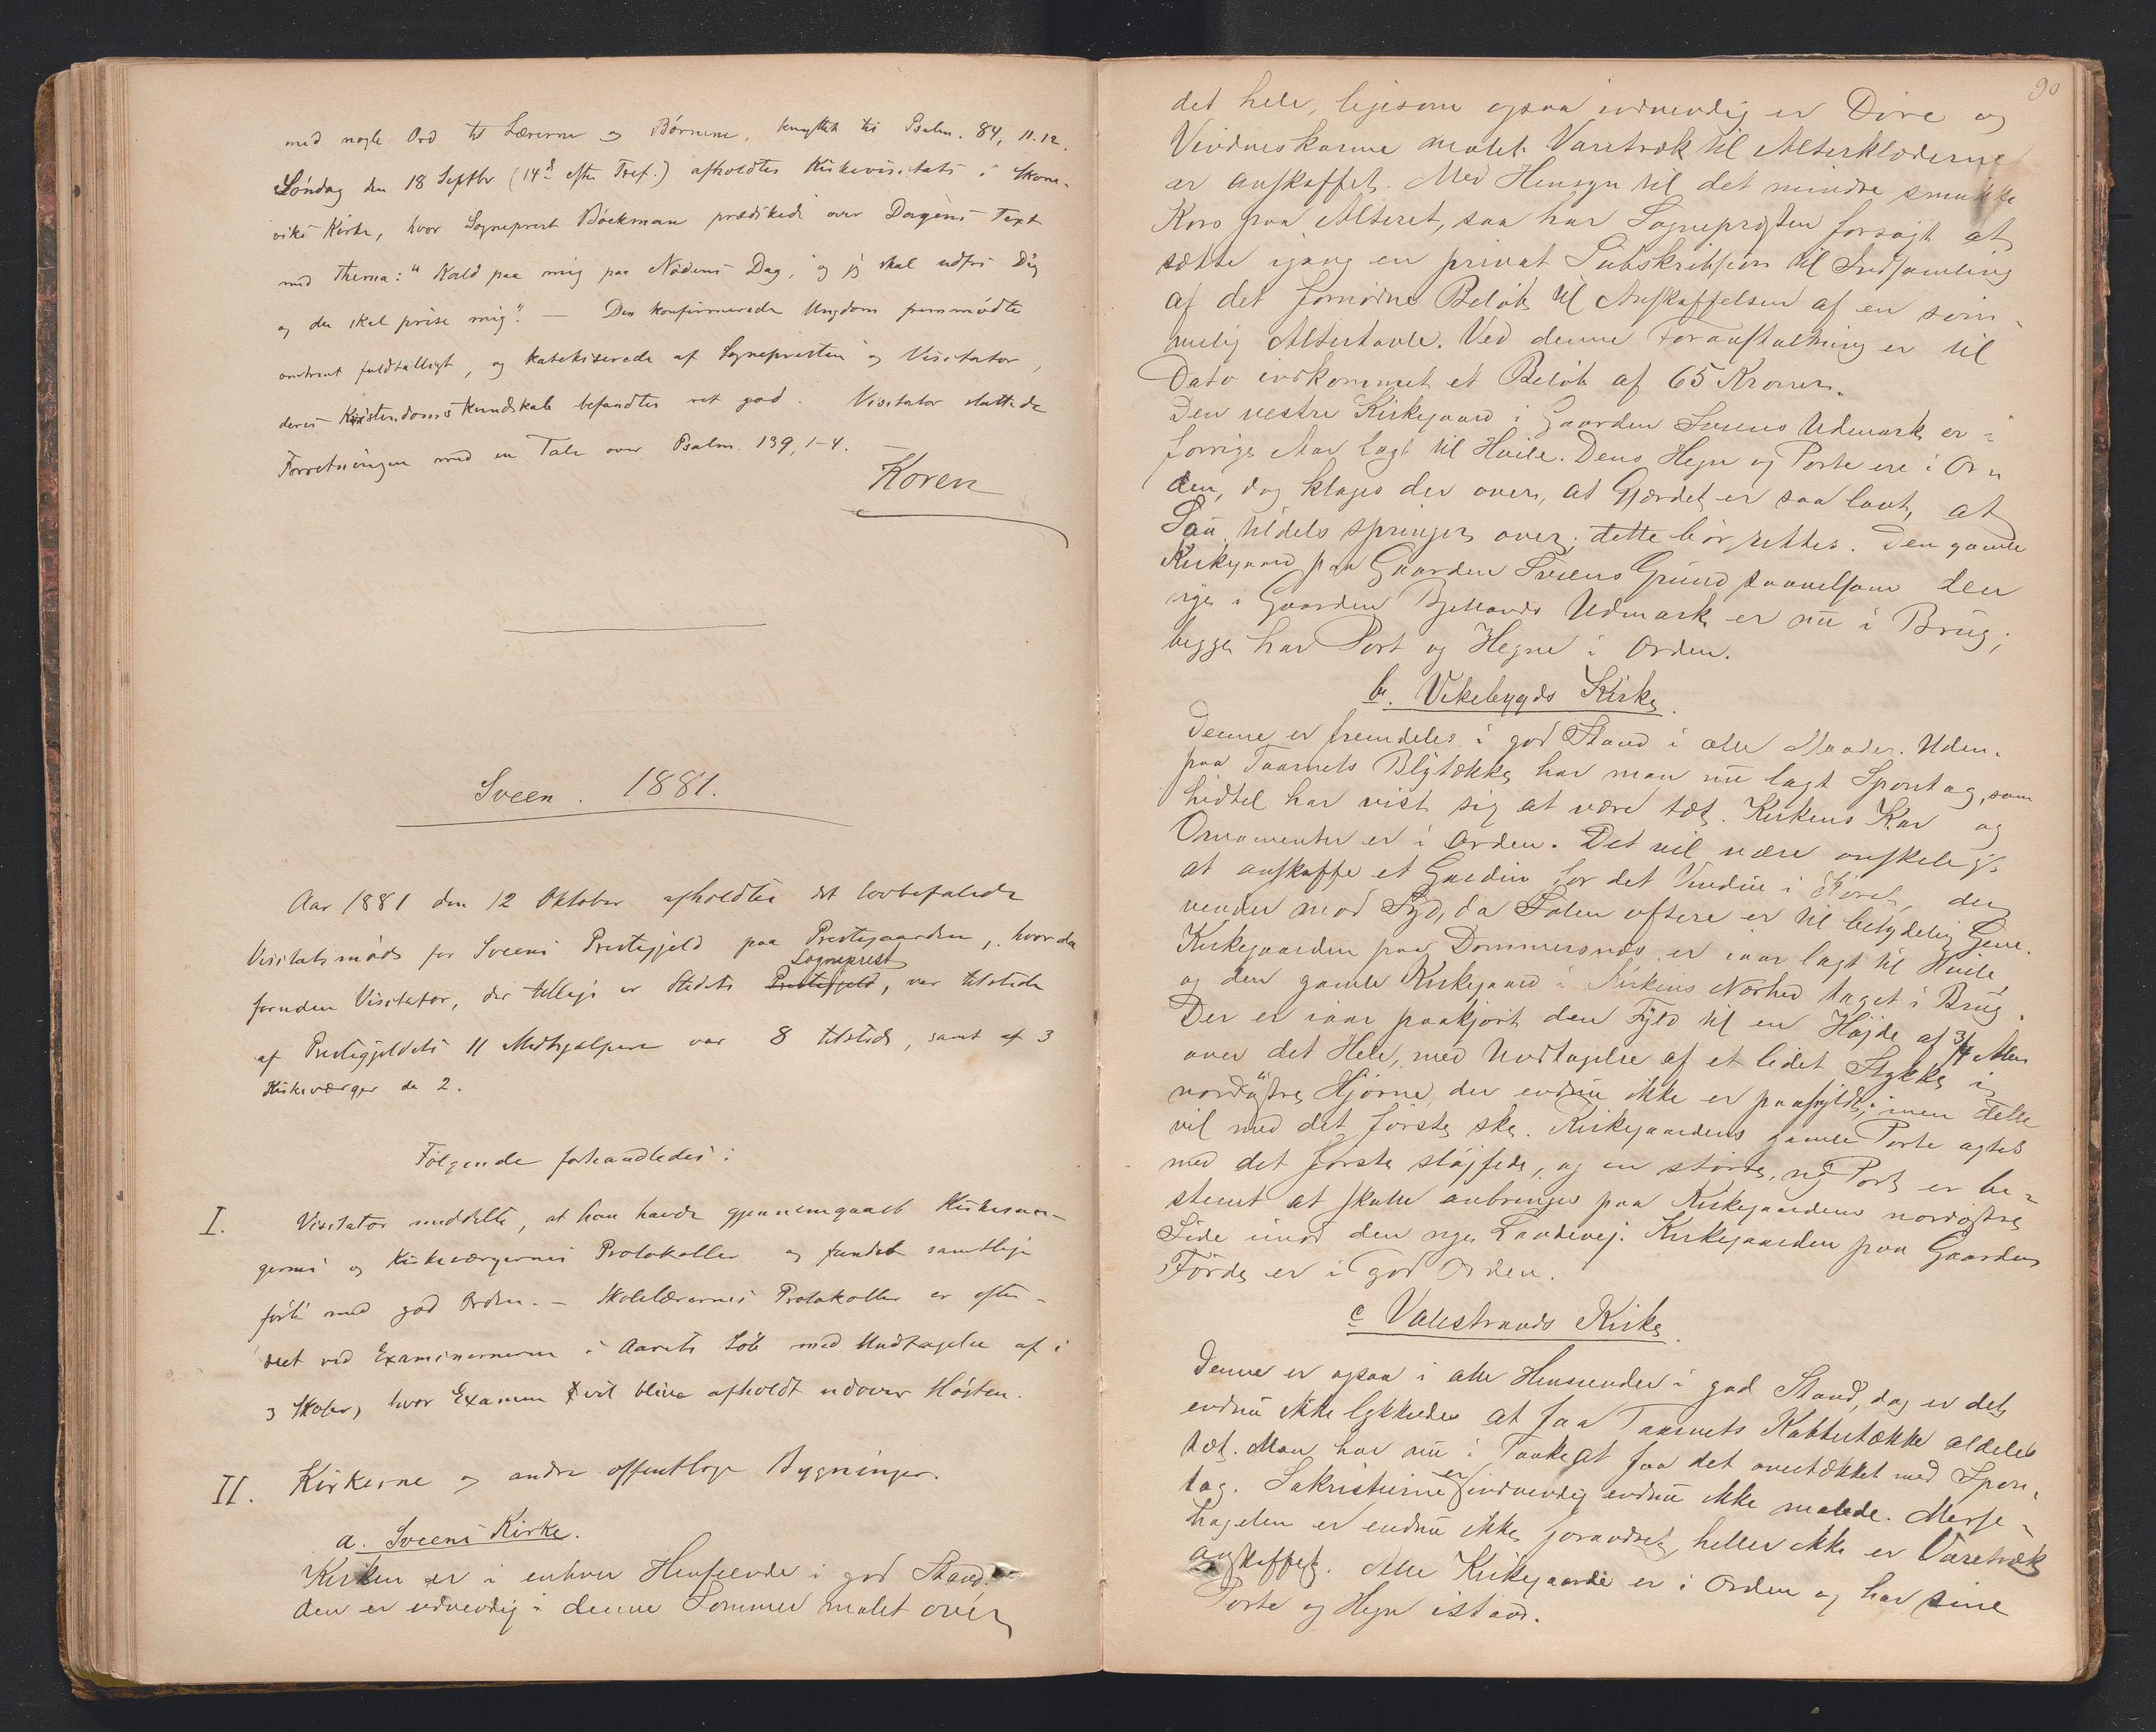 med nogle Ord til Lærerne og Børnene, knyttet til Psalm. 84, 11.12.
Søndag den 18 Septbr (14d efter Tref.) afholdtes Kirkevisitats i Skone-
viks Kirke, hvor Sogneprest Bøckman prædikede over Dagens Text
med Thema: "Kald paa mig paa Nødens Dag, og jeg skal udfri Dig
og du skal prise mig". — Den konfirmerede Ungdom fremmødte
omtrent fuldtalligt, og katekiserede af Sognepresten og Visitator,
deres Kristendomskundskab befandtes ret god. Visitator sluttede
Forretningen med en Tale over Psalm. 139, 1-4.
Koren
Sveen. 1881.
Aar 1881 den 12 Oktober afholdtes det lovbefalede
Visitatsmøde for Sveens Prestegjeld paa Prestegaarden, hvor da
Sogneprest
foruden Visitator, der tillige er Stedets Prestegjeld, var tilstede
af Prestegjeldets 11 Medhjælpere var 8 tilstede, samt af 3
Kirkeværger de 2.
Følgende forhandledes:
I. Visitator meddelte, at han havde gjennemgaaet Kirkesan-
gernes og Kirkeværgernes Protokoller og fundet samtlige
førte med god Orden. — Skolelærernes Protokoller er efter-
seet ved Examinerne i Aarets Løb med Undtagelse af i
3 Skoler, hvor Examen vil blive afholdt udover Høsten.
II. Kirkerne og andre offentlige Bygninger.
a. Sveens Kirke.
Kirken er i enhver Henseende i god Stand.
den er udvendig i denne Sommer malet over
90
det hele, ligesom ogsaa indvendig er Døre og
Vindueskarme malet. Varetræk til Alterklæderne
er anskaffet. Med Hensyn til det mindre smukke
Kors paa Alteret, saa har Sognepresten forsøgt at
sætte igang en privat Subskribtion til Indsamling
af det fornødne Beløb til Anskaffelsen af en søm-
melig Altertavle. Ved denne Foranstaltning er til
Dato indkommet et Beløb af 65 Kroner.
Den vestre Kirkegaard i Gaarden Sveens Udmark er i
forrige Aar lagt til Hvile. Dens Hegn og Porte ere i Or-
den, dog klages der over, at Gjærdet er saa lavt, at
Sau tildels springer over; dette bør rettes. Den gamle
Kirkegaard paa Gaarden Sveens Grund saavelsom den
nye i Gaarden Bjellands Udmark er nu i Brug;
begge har Port og Hegne i Orden.
b. Vikebygds Kirke.
Denne er fremdeles i god Stand i alle Maader. Uden-
paa Taarnets Blytække har man nu lagt Spontag, som
hidtil har vist sig at være tæt. Kirkens Kar og
Ornamenter er i Orden. Det vil være ønskeligt
at anskaffe et Gardin for det Vindue i Koret, der
vender mod Syd, da Solen oftere er til betydelig Gene.
Kirkegaarden paa Dommersnæs er iaar lagt til Hvile
og den gamle Kirkegaard i Kirkens Nærhed taget i Brug.
Der er iaar paakjørt den Fyld til en Højde af 3/4 Alen
over det Hele, med Undtagelse af et lidet Stykke i
nordøstre Hjørne, der endnu ikke er paafyldt; men dette
vil med det første ske. Kirkegaardens gamle Porte agtes
med det første sløjfede, og en større, ny Port er be-
stemt at skulle anbringes paa Kirkegaardens nordøstre
Side imod den nye Landevej. Kirkegaarden paa Gaarden
Førde er i god Orden.
c Valestrands Kirke.
Denne er ogsaa i alle Henseender i god Stand, dog er det
endnu ikke lykkedes at faa Taarnets Kobbertække aldeles
tæt. Man har nu i Tanke at faa det overtækket med Spon-
tag. Sakristierne er indvendig endnu ikke malede. Messe-
hagelen er endnu ikke forandret, heller ikke er Varetræk
anskaffet. Alle Kirkegaarde er i Orden og har sine
Porte og Hegn istand.